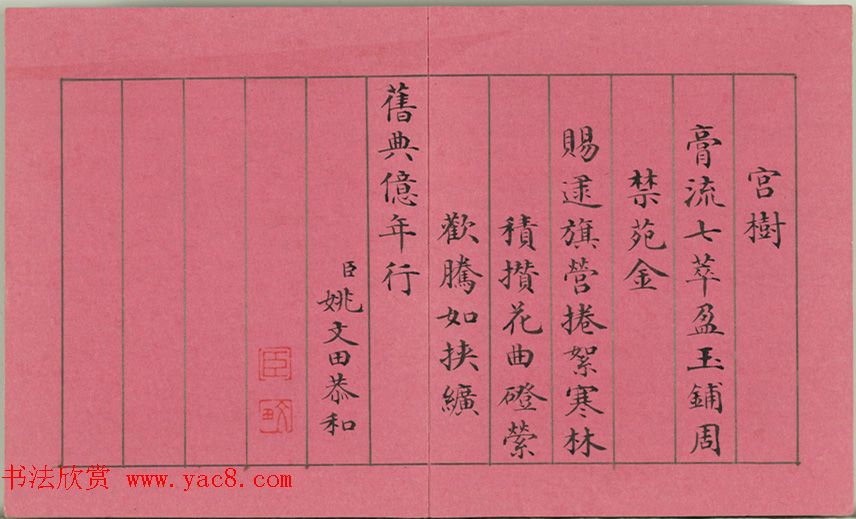 宮樹
膏流七萃盈玉鋪周
禁苑金
賜逮旗營捲絮寒林
積攢花曲磴縈
歡騰如挾纊
舊典億年行
臣姚文田恭和
臣
书法欣赏 www.yac8.com